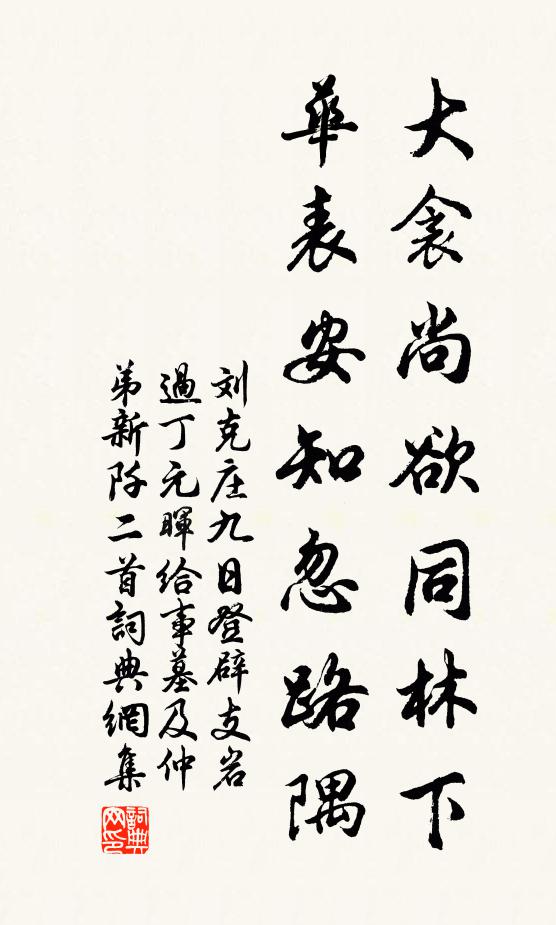 大衾尚欲同林下
華表安知忽路隅
刘克庄九日登辟支岩
過丁元暉給事墓及仲
弟新阡二首詞典網集
詞典網印